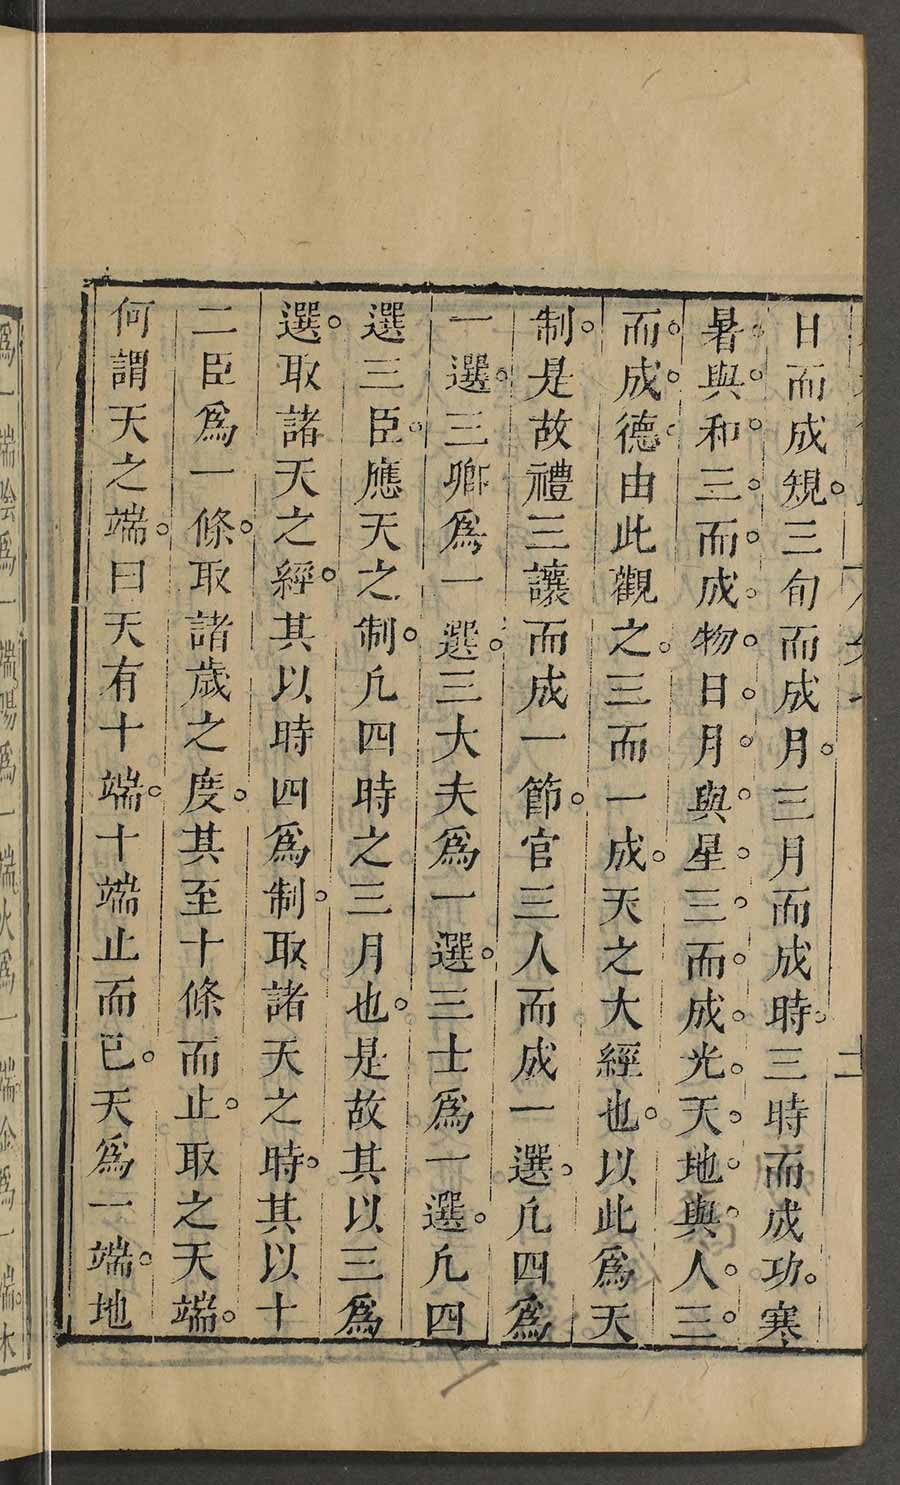 日而成䂓。三旬而成月。三月而成時。三時而成功。寒
暑與和三而成物。日月與星三而成光。天地與人三
而成德。由此觀之。三而一成。天之大經也。以此爲天
制。是故禮三讓而成一節。官三人而成一選。凢四爲
一選。三卿爲一選。三大夫爲一選。三士爲一選。凢四
選三臣。應天之制。凢四時之三月也。是故其以三爲
選。取諸天之經。其以時四爲制。取諸天之時。其以十
二臣爲一條。取諸歲之度。其至十條而止。取之天端。
何謂天之端。曰天有十端。十端止而已。天爲一端。地
爲一端陰爲一端陽爲一端火爲一端金爲一端木